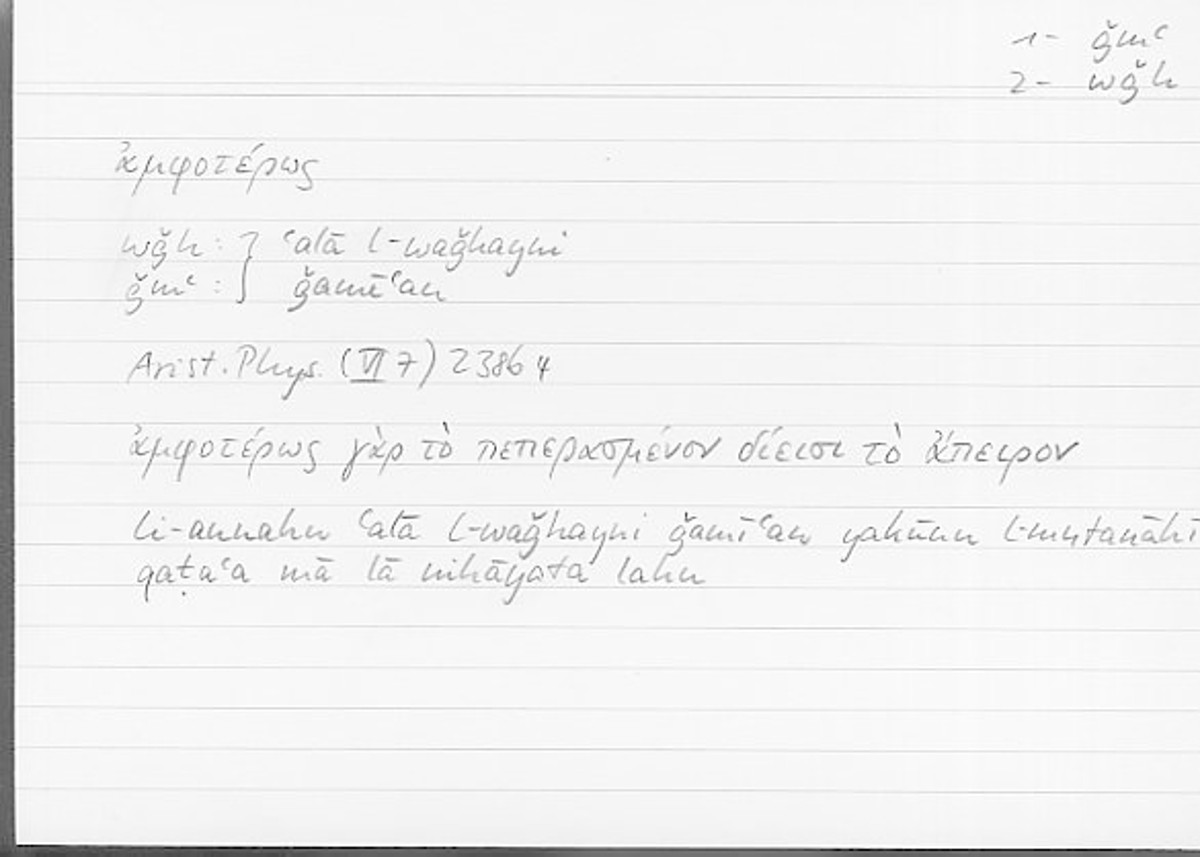 1- ǧmʿ
2- wǧh
ἀμφοτέρως
wǧh : } ʿalā l-waǧhayni
ǧmʿ : } ǧamīʿan
Arist. Phys. (VI 7) 238b4
ἀμφοτέρως γὰρ τὸ πεπερασμένον δίεισι τὸ ἄπειρον
li-annahu ʿalā l-waǧhayni ǧamīʿan yakūnu l-mutanāhī
qaṭaʿa mā lā nihāyata lahu